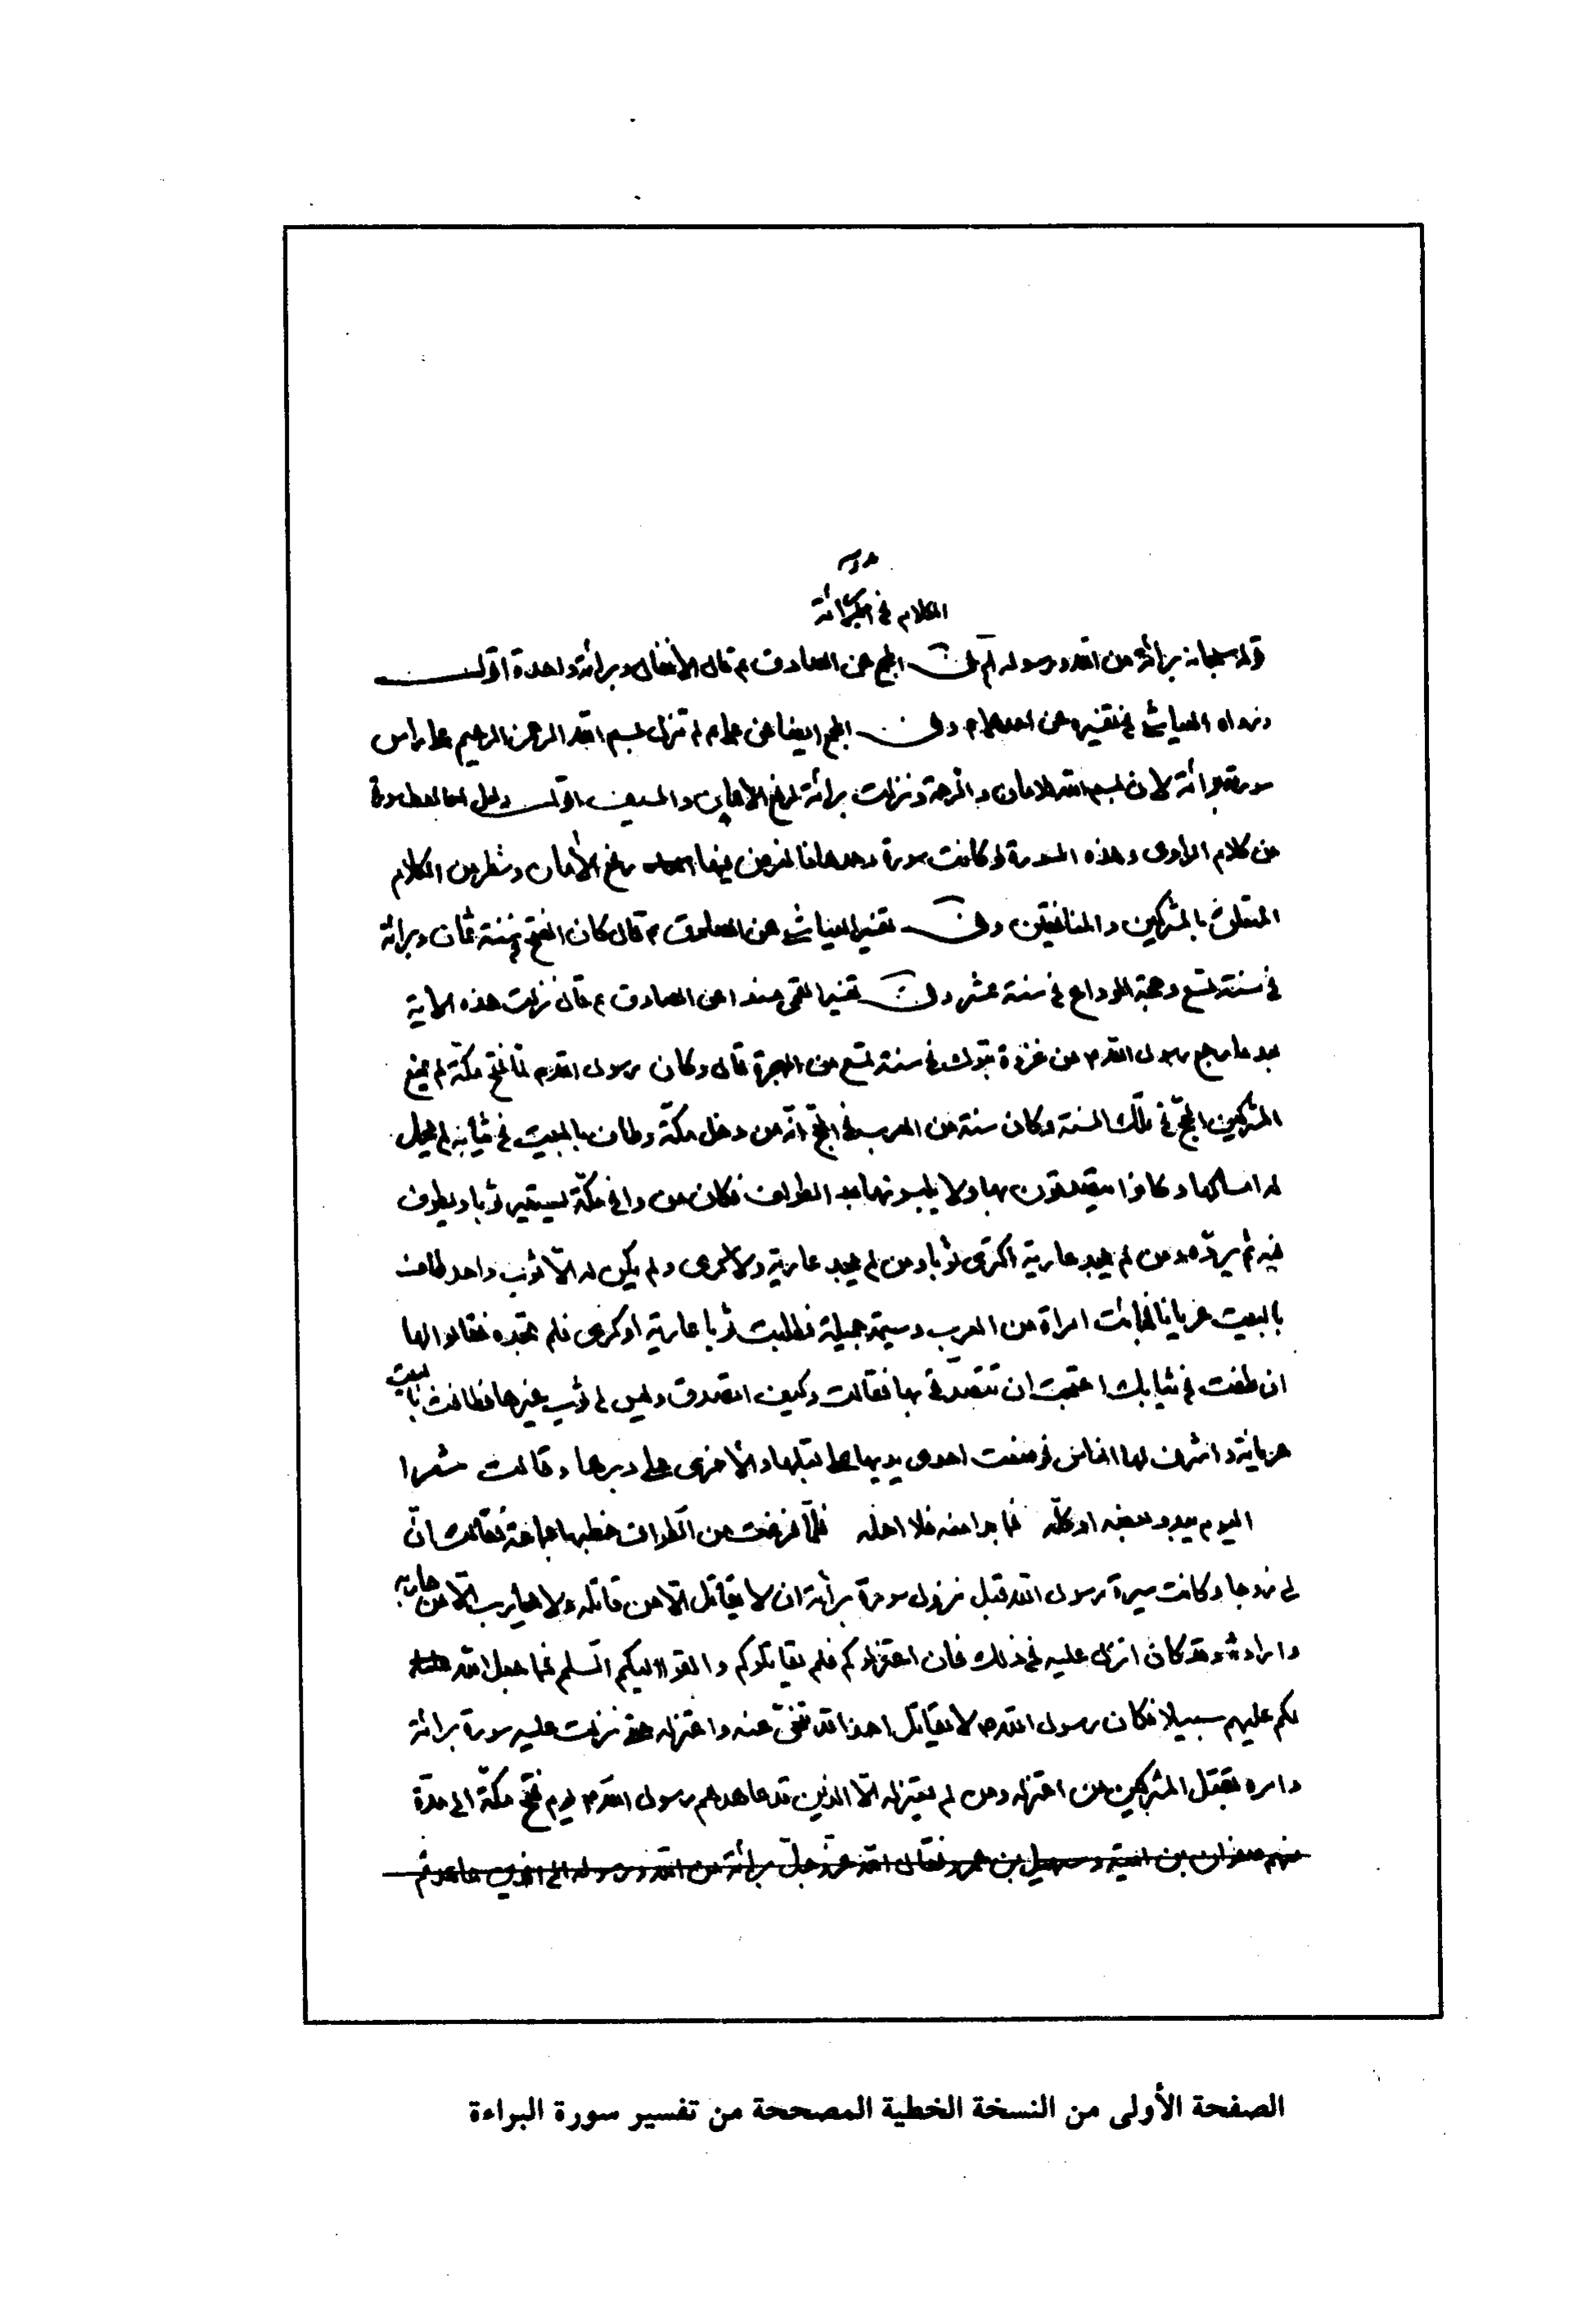 الكلام في البرائة
قوله سبحانه برائة من الله ورسوله آه في المجمع عن الصادق ع قال الأنفال وبرائة واحدة اقول
ورواه العياشي في تفسيره عن احدهما ع وفي المجمع ايضا عن علي ع لم تنزل بسم الله الرحمن الرحيم على راس
سورة برائة لان بسم الله للامان والرحمة ونزلت برائة لرفع الأمان والسيف اقول ولعل لفظ
من كلام الراوي وهذه السورة لو كانت سورة وحدها فالغرض فيها رفع الأمان وشطر من الكلام
المتعلق بالمشركين والمنافقين وفي تفسير العياشي عن الصادق ع قال كان الفتح في سنة ثمان وبرائة
في سنة تسع وحجة الوداع في سنة عشر وفي تفسير القمي مسندا عن الصادق ع قال نزلت هذه الآية
بعد ما رجع رسول الله ص من غزوة تبوك في سنة تسع من الهجرة قال وكان رسول الله ص لما فتح مكّة لم يمنع
المشركين الحجّ في تلك السنة وكان سنة من العرب في الحجّ انّه من دخل مكّة وطاف بالبيت في ثيابه لم يحل
له امساكها وكانوا يتصدقون بها ولا يلبسونها بعد الطواف فكان من وافى مكّة يستعير ثوبا ويطوف
فيه ثم يردّه ومن لم يجد عارية اكترى ثوبا ومن لم يجد عارية ولا كرى ولم يكن له الّا ثوب واحد طاف
بالبيت عريانا فجائت امراة من العرب وسيمة جميلة فطلبت ثوبا عارية او كرى فلم تجده فقالوا لها
ان طفت في ثيابك احتجت ان تتصدّقي بها فقالت وكيف اتصدق وليس لي ثوب غيرها فطافت بالبيت
عريانة واشرف لها الناس فوضعت احدى يديها على قبلها والأخرى على دبرها وقالت شعرا
اليوم يبدو بعضه او كلّه فما بدا منه فلا احله فلمّا فرغت من الطواف خطبها جماعة فقالت انّ
لي زوجا وكانت سيرة رسول الله قبل نزول سورة برائة ان لا يقاتل الّا من قاتله ولا يحارب الّا من حاربه
واراده وقد كان انزل عليه في ذلك فان اعتزلوكم فلم يقاتلوكم والقوا اليكم السّلم فما جعل الله
لكم عليهم سبيلا فكان رسول الله ص لا يقاتل احدا قد تنحّى عنه واعتزله حتى نزلت عليه سورة برائة
وامره بقتل المشركين من اعتزله ومن لم يعتزله الّا الذين قد عاهدهم رسول الله ص يوم فتح مكّة الى مدّة
منهم صفوان بن امية وسهيل بن عمرو فقال الله عزّ وجلّ برائة من الله ورسوله الى الذين عاهدتم
الصفحة الأولى من النسخة الخطية المصححة من تفسير سورة البراءة